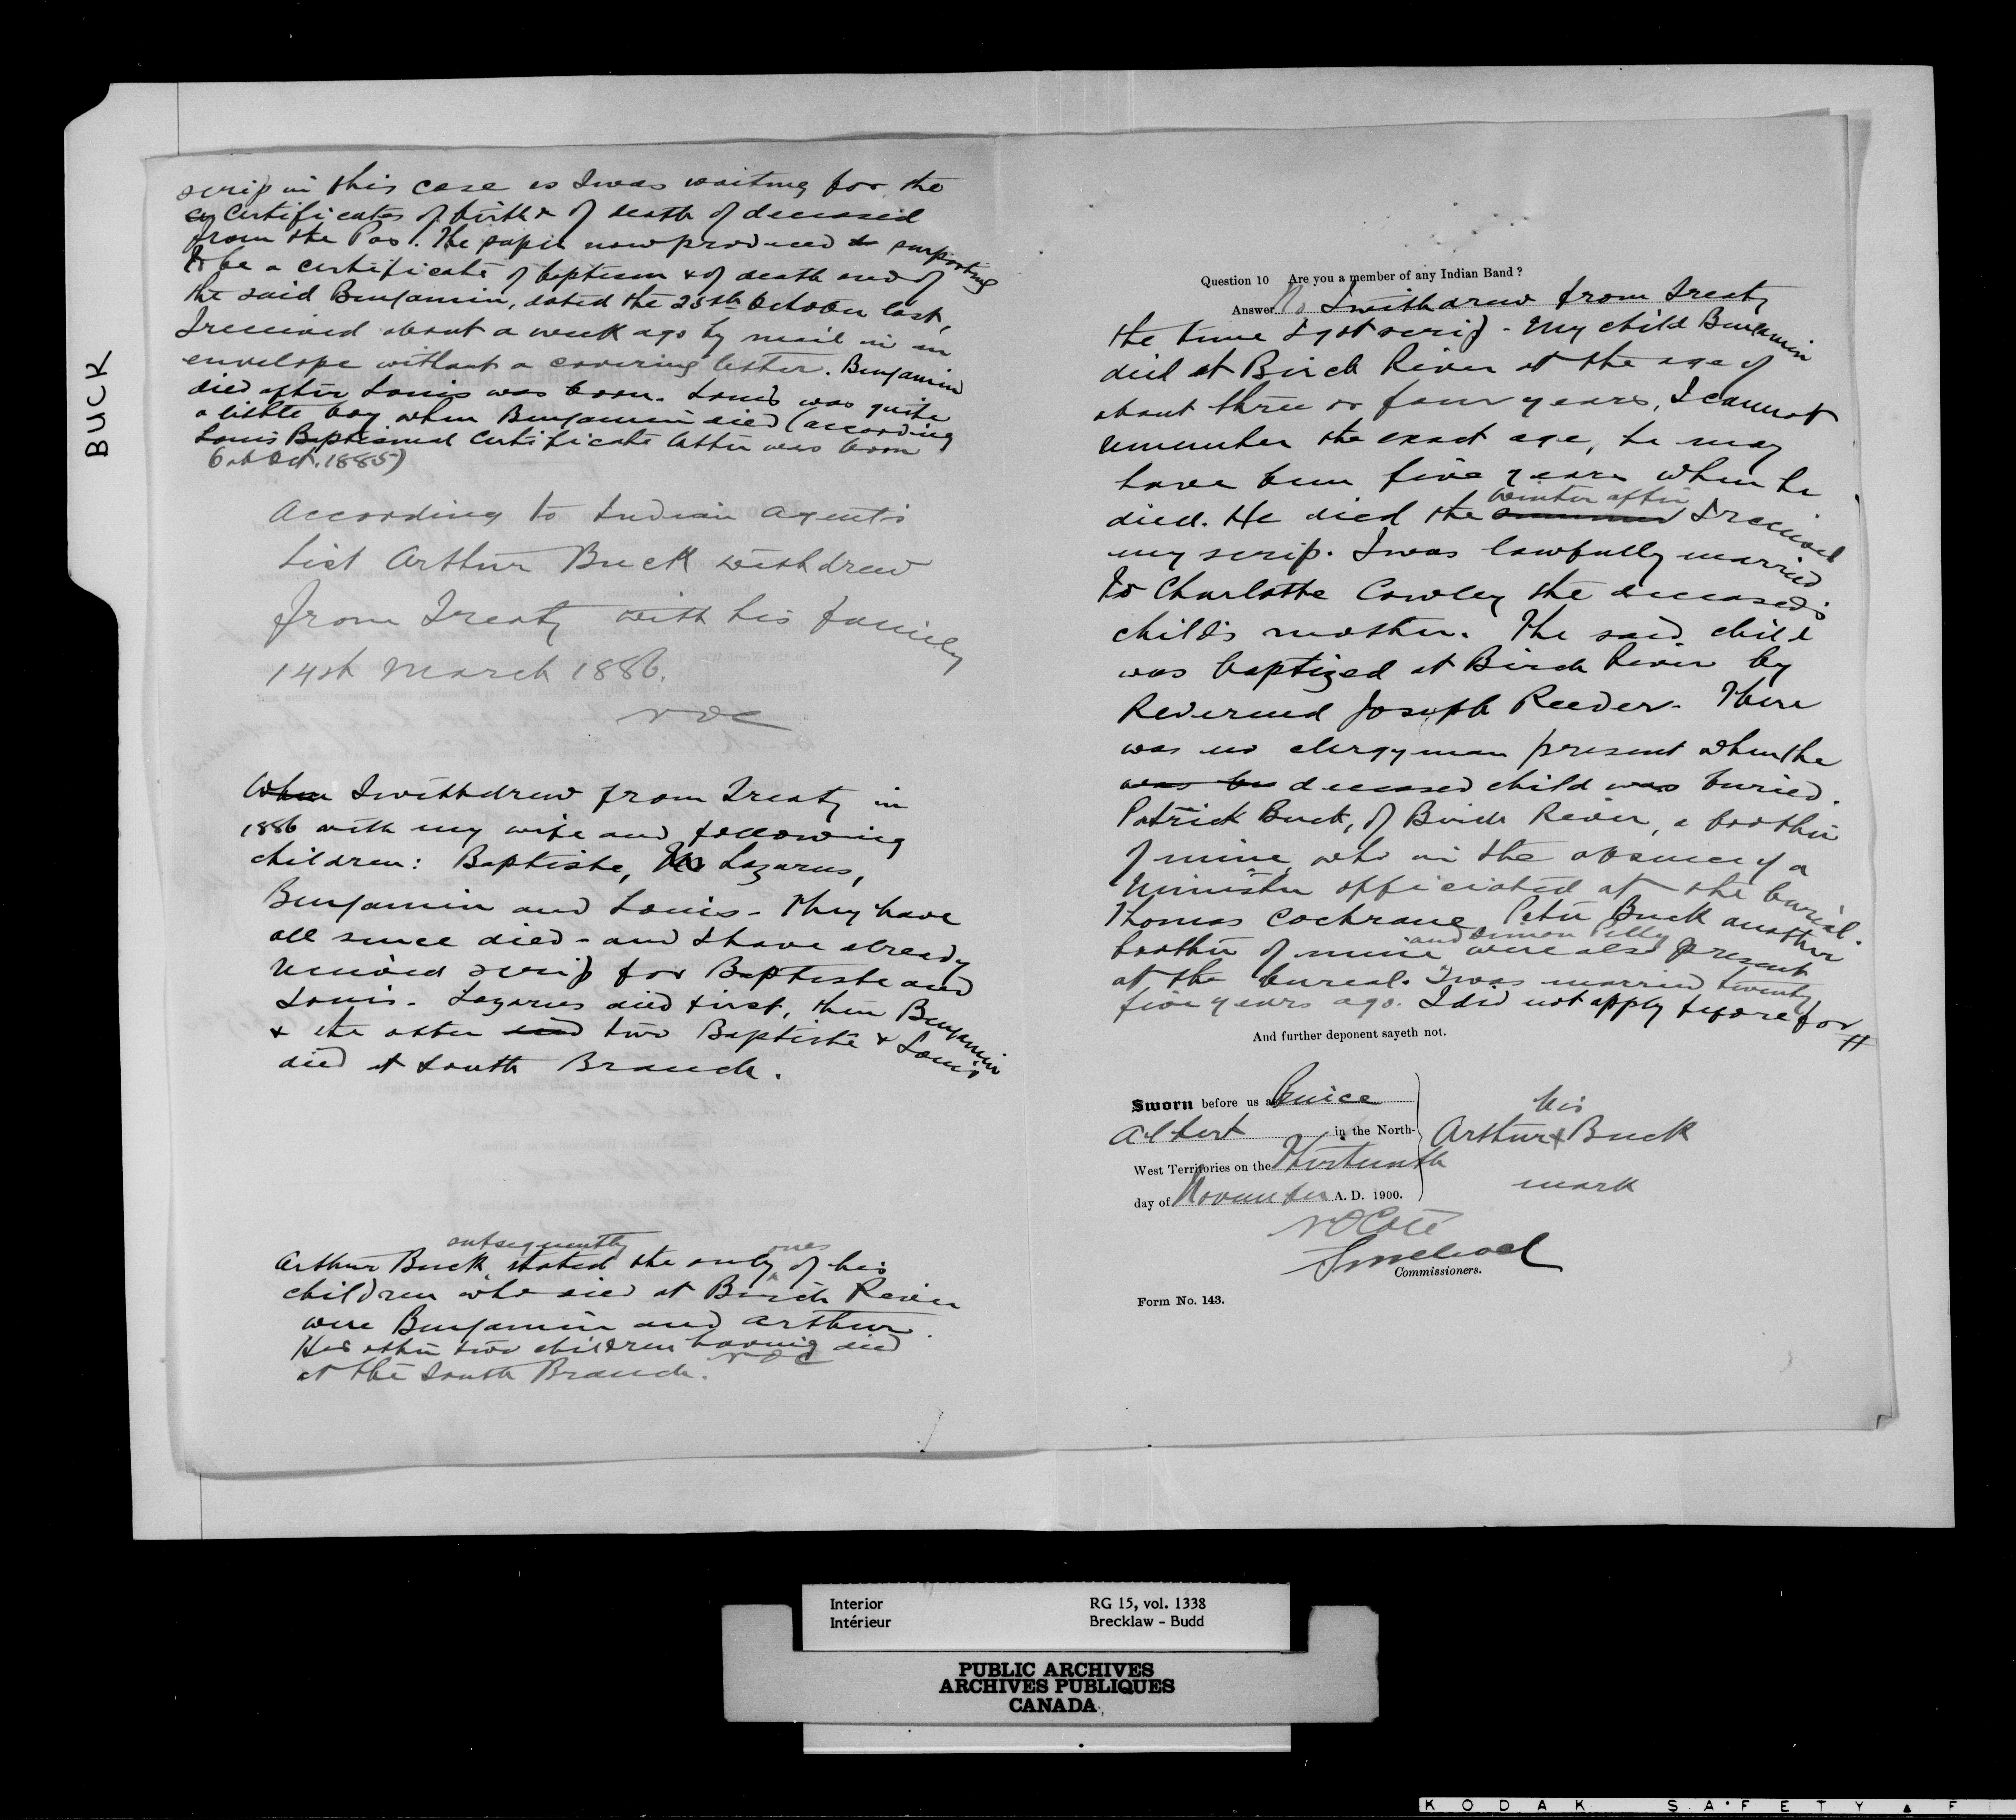 BUCK
scrip in this case as I was waiting for the
certificates of birth & of death of deceased
from the Pas. The paper now produced purporting
to be a certificate of baptism & of death and of
the said Benjamin, dated the 25th October last,
I received about a week ago by mail in an
envelope without a covering letter. Benjamin
died after Louis was born. Louis was quite
a little boy when Benjamin died (according
Louis Baptismal Certificate latter was born
6th Oct. 1885)
According to Indian Agent's
list Arthur Buck withdrew
from Treaty with his family
14th March 1886.
NOC
When I withdrew from Treaty in
1886 with my wife and following
children: Baptiste, Lazarus,
Benjamin and Louis - They have
all since died - and I have already
received scrip for Baptiste and
Louis - Lazarus died first, then Benjamin
& the other died two Baptiste & Louis
died at South Branch.
Arthur Buck subsequently stated the only ones of his
children who died at Birch River
were Benjamin and Arthur.
His other two children having died
at the South Branch. NOC
Question 10 Are you a member of any Indian Band ?
Answer No I withdrew from Treaty
the time I got scrip - My child Benjamin
died at Birch River at the age of
about three or four years, I cannot
remember the exact age, he may
have been five years when he
died. He died the summer winter after I received
my scrip. I was lawfully married
to Charlotte Cowley the deceased's
child's mother. The said child
was baptized at Birch River by
Reverend Joseph Reeder - There
was no clergyman present when the
was deceased child was buried.
Patrick Buck, of Birch River, a brother
of mine, who in the absence of a
Minister officiated at the burial.
Thomas Cochrane, Peter Buck another
brother of mine and Simon were also present
at the burial. I was married twenty
five years ago. I did not apply before for #
And further deponent sayeth not.
Sworn before us at Prince
Albert in the North-
West Territories on the Thirteenth
day of November A. D. 1900.
his
Arthur X Buck
mark
NOCoté
Commissioners.
Form No. 143.
Interior
Intérieur
RG 15, vol. 1338
Brecklaw - Budd
PUBLIC ARCHIVES
ARCHIVES PUBLIQUES
CANADA
KODAK SAFETY F